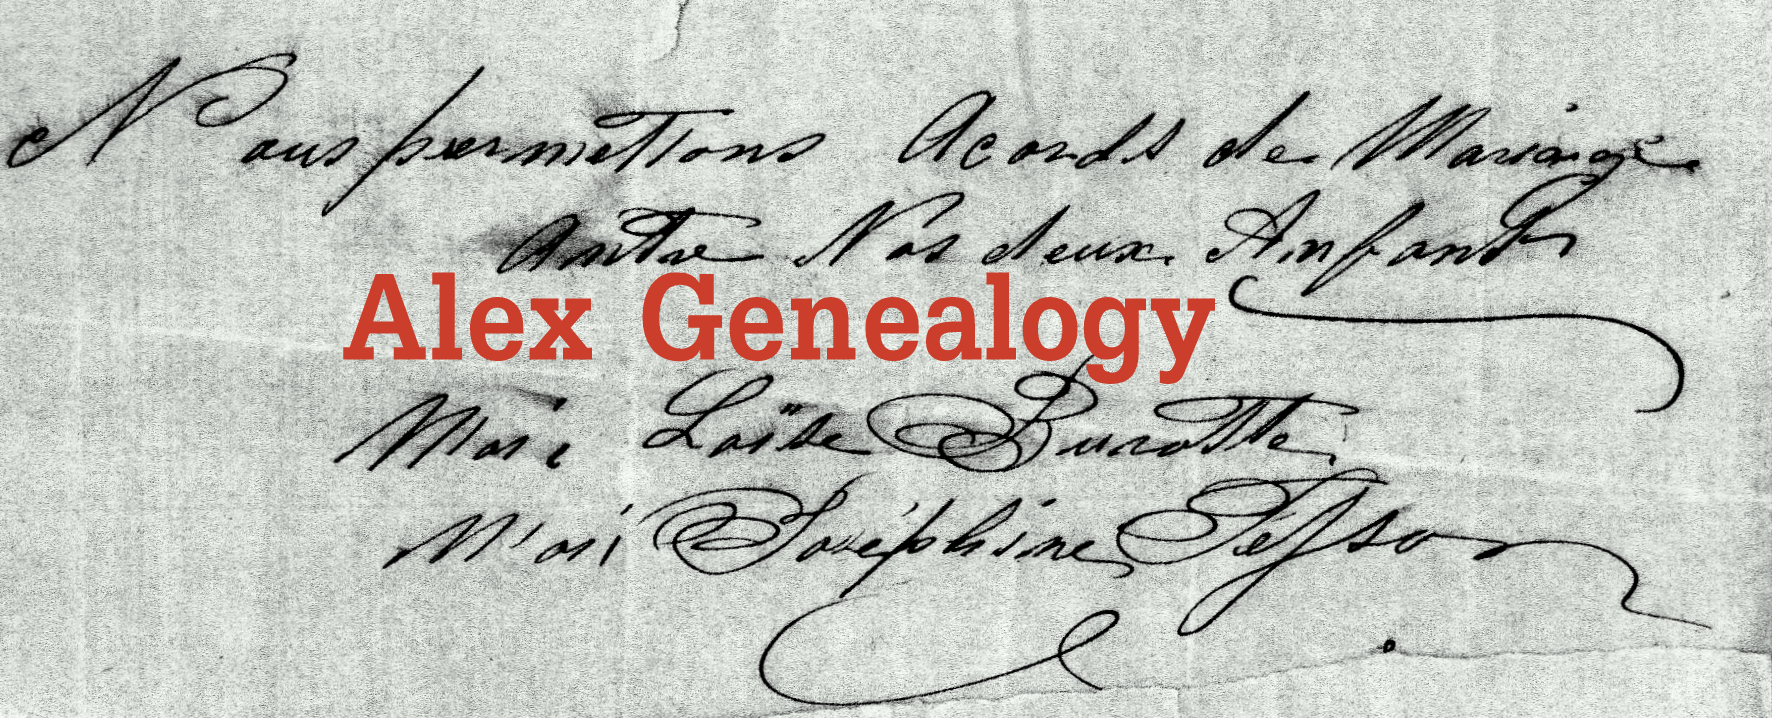 Nous permettons Acords de Mariage
Antre Nos deux Anfants
Alex Genealogy
Mari Loïse Burotte
Mari Joséphine Tesson